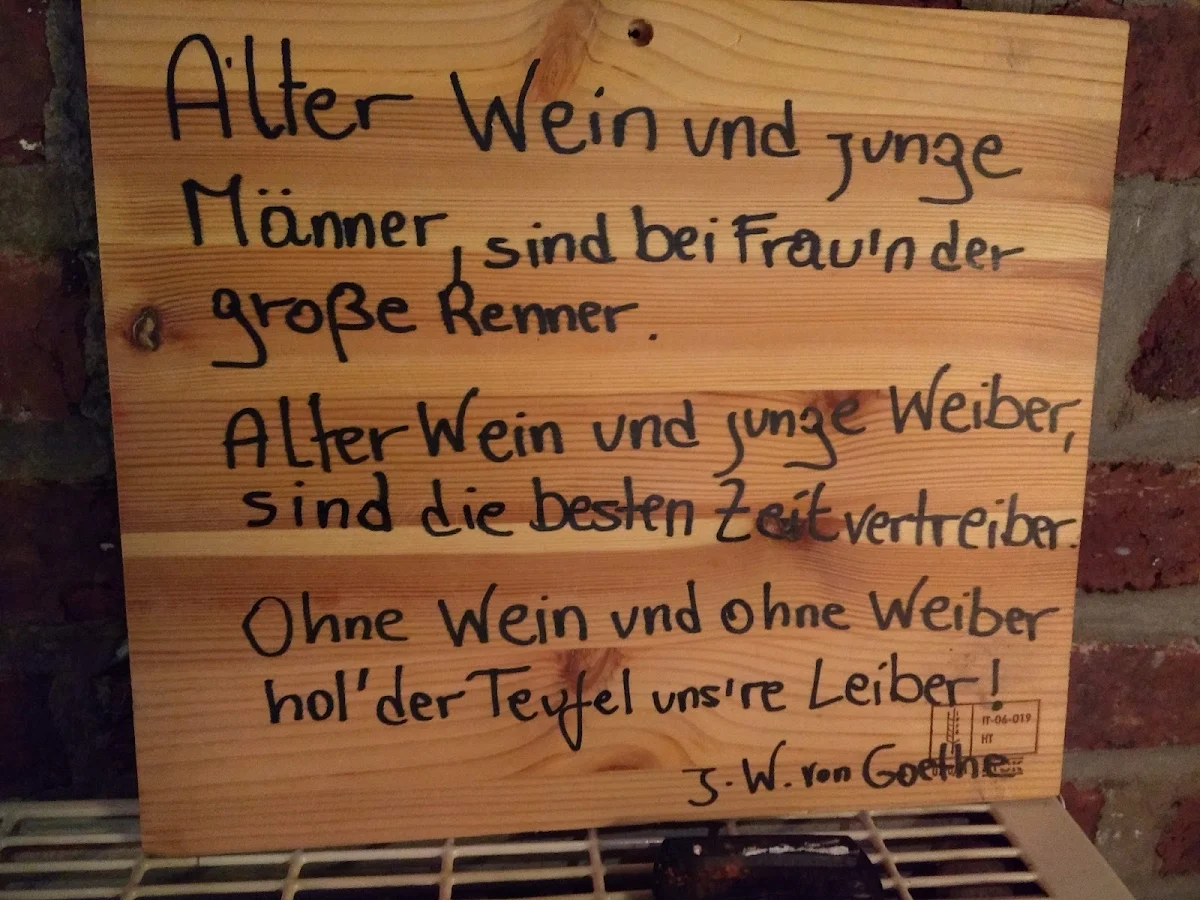 Alter Wein und junge
Männer, sind bei Frau'n der
große Renner.
Alter Wein und junge Weiber,
sind die besten Zeitvertreiber.
Ohne Wein und ohne Weiber
hol' der Teufel uns're Leiber!
IT-06-019
HT
J. W. von Goethe